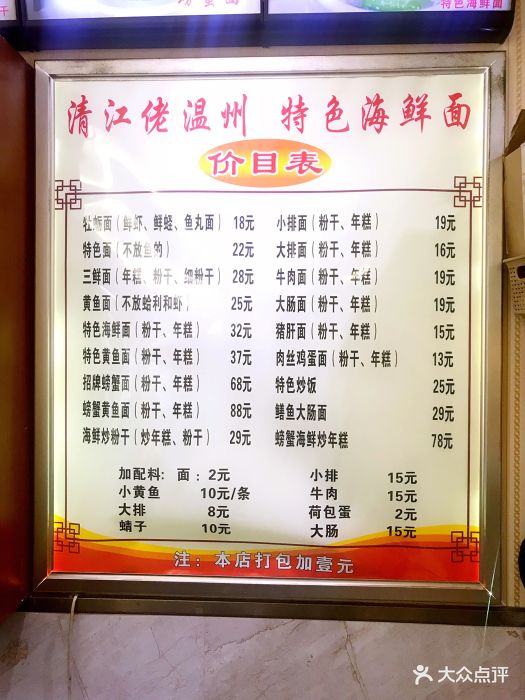 特色海鲜面
清江佬温州 特色海鲜面
价目表
牡蛎面（鲜虾、鲜蛏、鱼丸面） 18元
特色面（不放鱼的） 22元
三鲜面（年糕、粉干、细粉干） 28元
黄鱼面（不放蛤利和虾） 25元
特色海鲜面（粉干、年糕） 32元
特色黄鱼面（粉干、年糕） 37元
招牌螃蟹面（粉干、年糕） 68元
螃蟹黄鱼面（粉干、年糕） 88元
海鲜炒粉干（炒年糕、粉干） 29元
小排面（粉干、年糕） 19元
大排面（粉干、年糕） 16元
牛肉面（粉干、年糕） 19元
大肠面（粉干、年糕） 19元
猪肝面（粉干、年糕） 15元
肉丝鸡蛋面（粉干、年糕） 13元
特色炒饭 25元
鳝鱼大肠面 29元
螃蟹海鲜炒年糕 78元
加配料：面：2元
小黄鱼 10元/条
大排 8元
蛸子 10元
小排 15元
牛肉 15元
荷包蛋 2元
大肠 15元
注：本店打包加壹元
大众点评